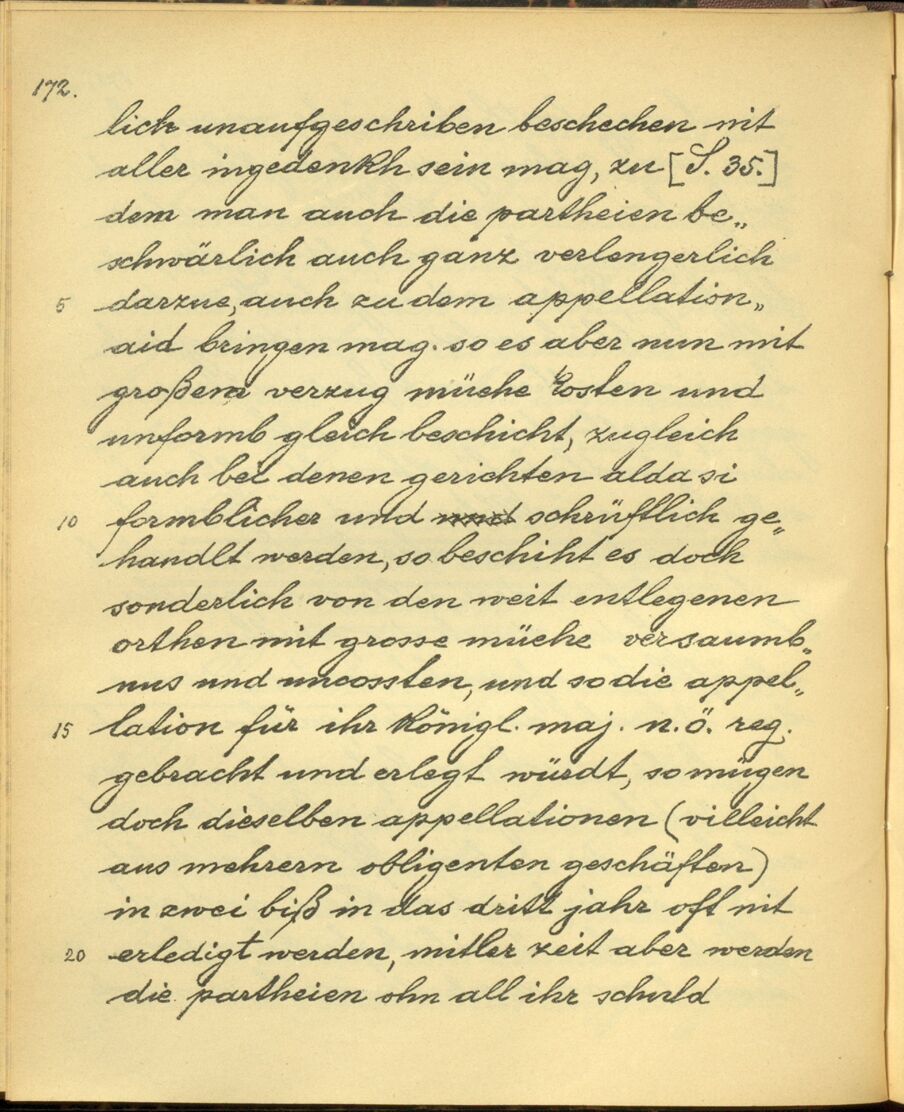 172.
lich unaufgeschriben beschechen nit
aller ingedenkh sein mag, zu [S. 35.]
dem man auch die partheien be„
schwärlich auch ganz verlengerlich
5 darzue, auch zu dem appellation„
aid bringen mag. so es aber nun mit
großem verzug müehe kosten und
unformb gleich beschicht, zugleich
auch bei denen gerichten alda si
10 formblicher und schrüftlich ge„
handlt werden, so beschiht es doch
sonderlich von den weit entlegenen
orthen mit grosse müehe versaumb„
nus und uncossten, und so die appel„
15 lation für ihr königl. maj. n.ö. reg.
gebracht und erlegt würdt, so mügen
doch dieselben appellationen (villeicht
aus mehrern obligenten geschäften)
in zwei biß in das dritt jahr oft nit
20 erledigt werden, mitler zeit aber werden
die partheien ohn all ihr schuld